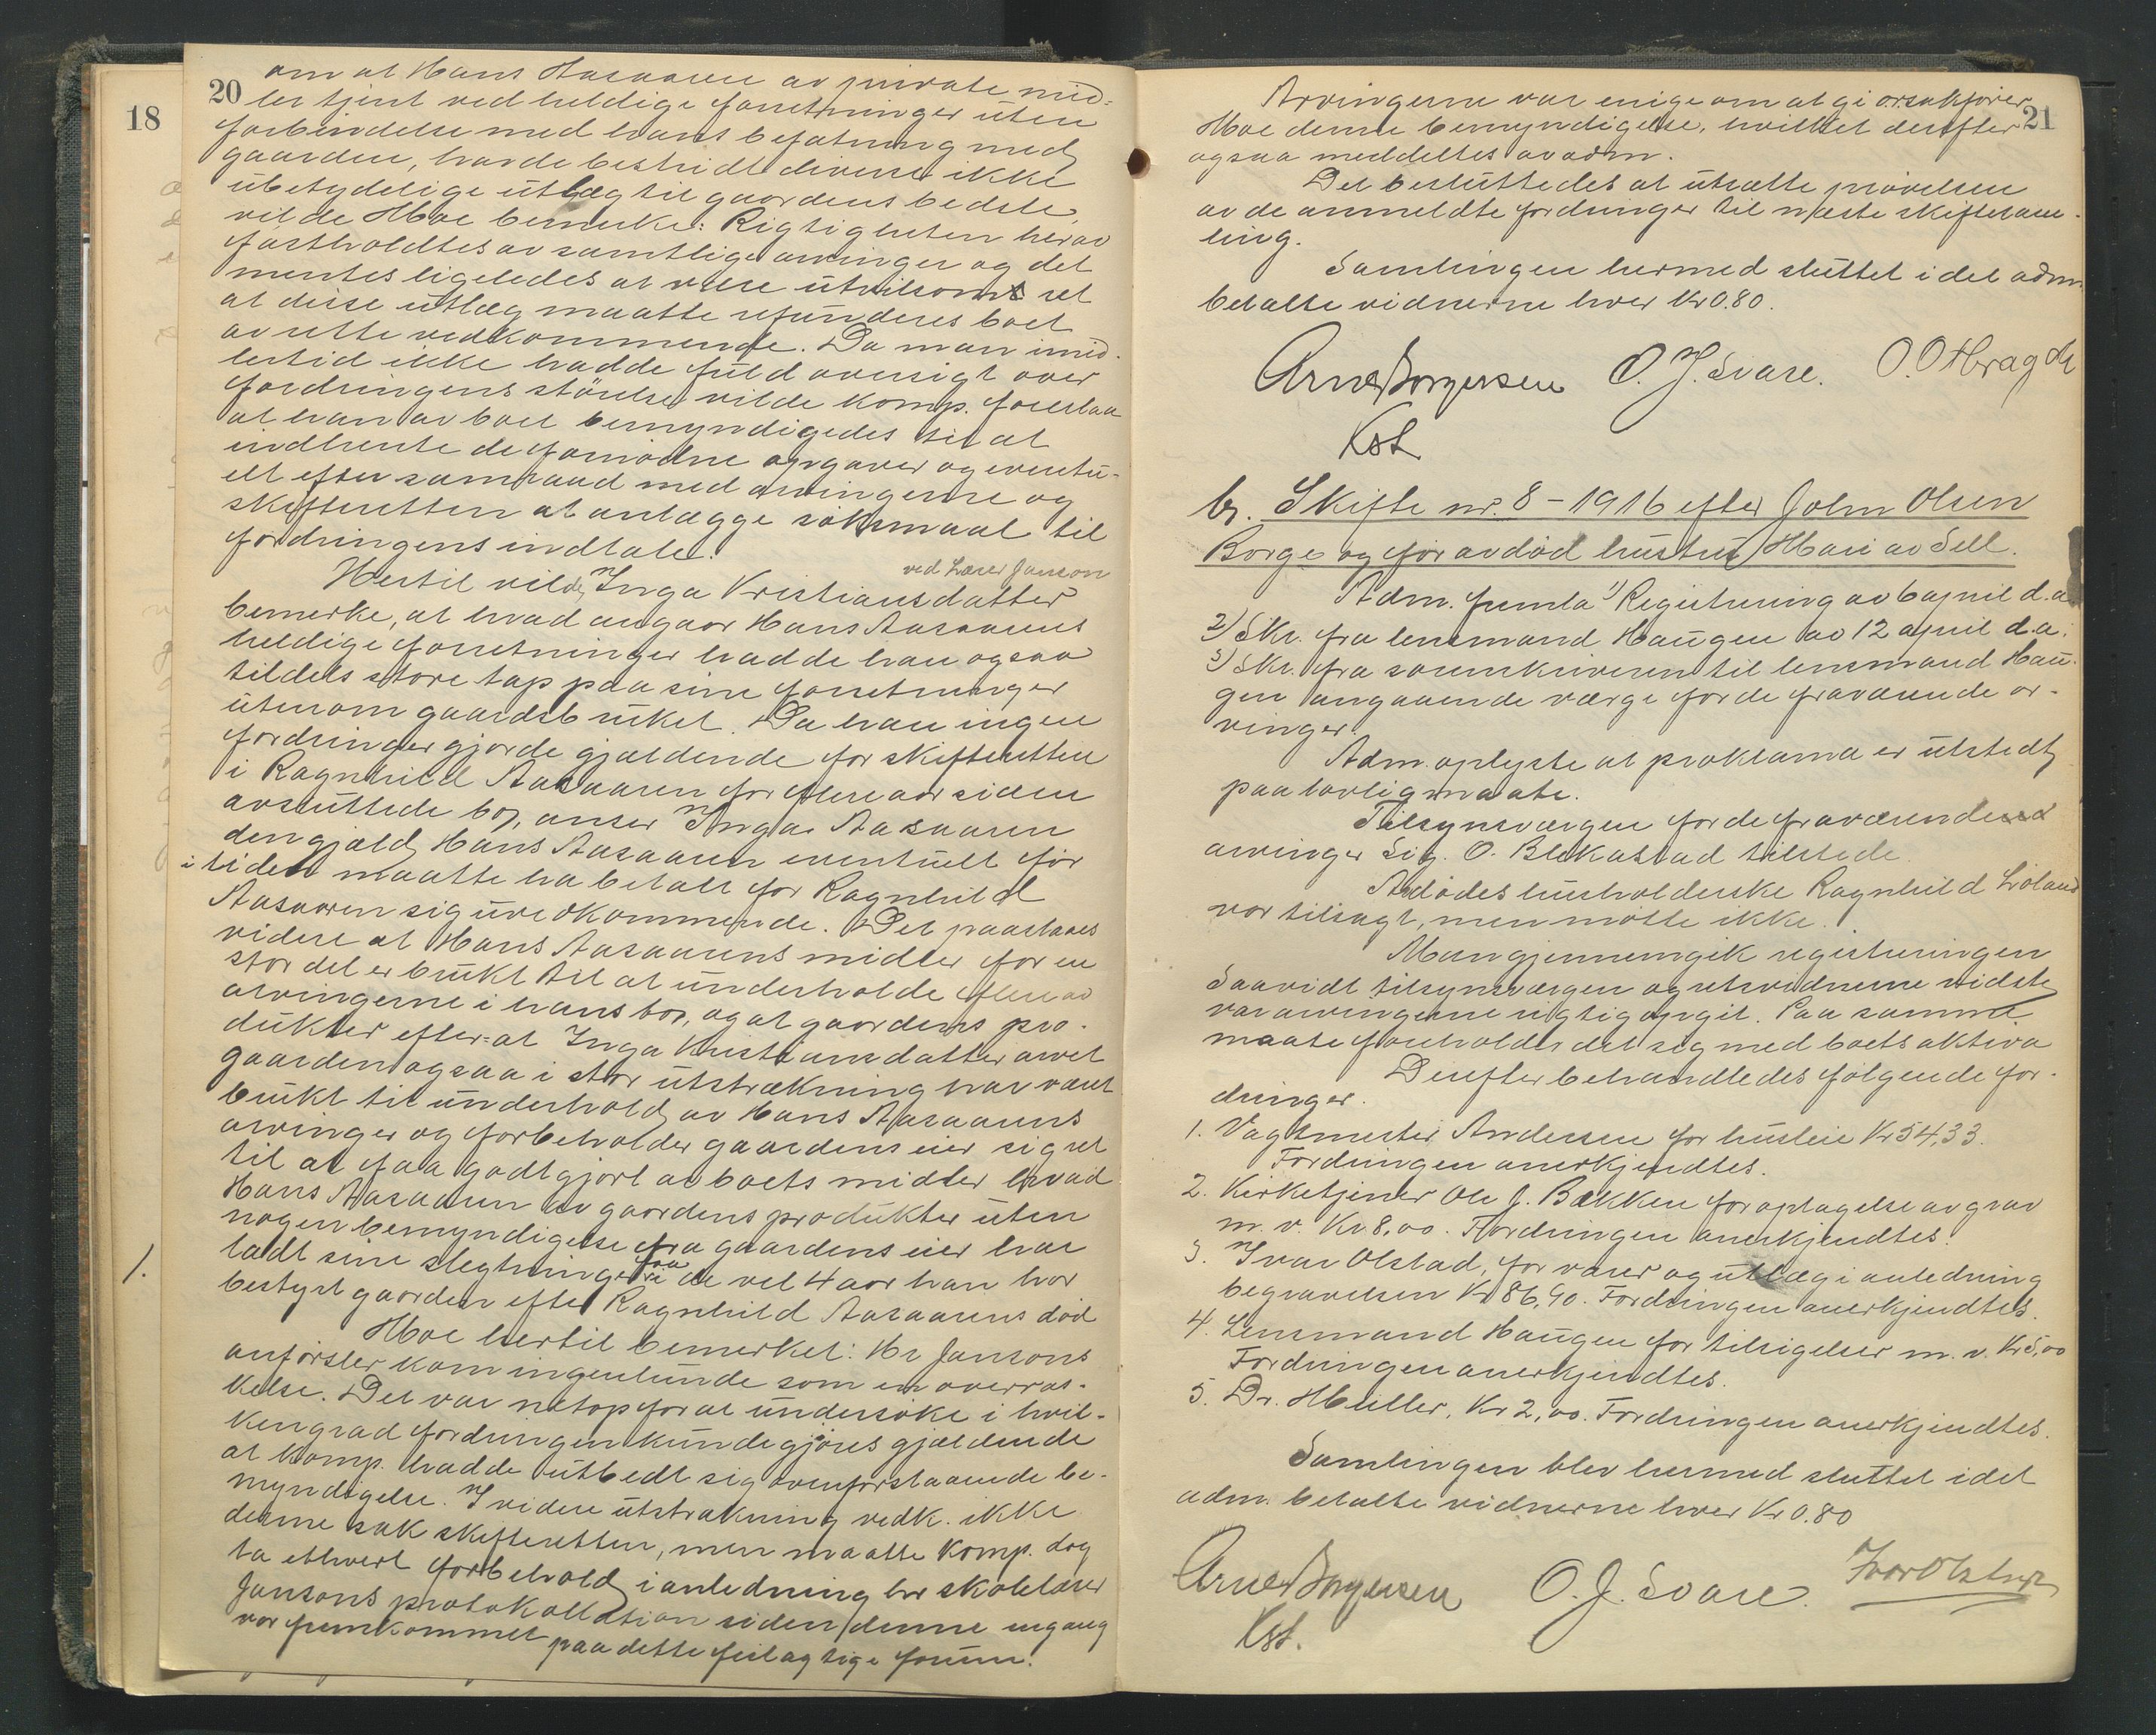 18
20
om at Hans Aasaaren av private mid-
ler tjent ved heldige forretninger uten
forbindelse med hans befatning med
gaarden, havde bestridt diverse ikke
ubetydelige utlæg til gaardens bedste,
vilde Moe bemerke: Rigtigheten herav
fastholdtes av samtlige arvinger og det
mentes ligeledes at være utvilsomt ret
at disse utlæg maatte refunderes boet
av rette vedkommende. Da man imid-
lertid ikke hadde fuld oversigt over
fordringens størrelse vilde komp. foreslaa
at han av boet bemyndigedes til at
indhente de fornødne opgaver og eventu-
elt efter samraad med arvingerne og
skifteretten at anlægge søksmaal til
fordringens indtale.
ved Lærer Janson
Hertil vilde Inga Kristiansdatter
bemerke, at hvad angaar Hans Aasaarens
heldige forretninger hadde han ogsaa
tildels store tap paa sine forretninger
utenom gaardsbruket. Da han ingen
fordringer gjorde gjældende for skifteretten
i Ragnhild Aasaaren for flere aar siden
avsluttede bo, anser Inga Aasaaren
den gjæld Hans Aasaaren eventuelt før
i tiden maatte ha betalt for Ragnhild
Aasaaren sig uvedkommende. Det paastaaes
videre at Hans Aasaarens midler for en
stor del er brukt til at underholde flere av
arvingerne i hans bo, og at gaardens pro-
dukter efter at Inga Kristiansdatter arvet
gaarden ogsaa i stor utstrækning har været
brukt til underhold av Hans Aasaarens
arvinger og forbeholder gaardens eier sig ret
til at faa godtgjort av boets midler hvad
Hans Aasaaren av gaardens produkter uten
nogen bemyndigelse fra gaardens eier har
latt sine slegtninger faa i de vel 4 aar han har
1.
bestyrt gaarden efter Ragnhild Aasaarens død
Moe hertil bemerket: Hr Jansons
anførsler kom ingenlunde som en overras-
kelse. Det var netop for at undersøke i hvil-
ken grad fordringen kunde gjøres gjældende
at komp. hadde utbedt sig ovenforstaaende be-
myndigelse. I videre utstrækning vedk. ikke
denne sak skifteretten, men maatte komp. dog
ta ethvert forbehold i anledning hr skolelærer
Jansons protokollation siden denne engang
var fremkommet paa dette feilagtige forum.
21
Arvingerne var enige om at gi orsakfører
Moe denne bemyndigelse, hvilket derefter
ogsaa meddeltes av adm.
Det besluttedes at utsætte prøvelsen
av de anmeldte fordringer til næste skiftesam-
ling.
Samlingen hermed sluttet idet adm.
betalte vidnerne hver Kr 0.80.
Arne Borgersen O. J. Svare. O. O Bragdø
Kst
br. Skifte nr. 8 - 1916 efter John Olsen
Borge og før avdød hustru Mari av Sell.
Adm. fremla 1) Registrering av 6 april d.a.
2) Skr. fra lensmand Haugen av 12 april d.a.
3) Skr. fra sorenskriveren til lensmand Hau-
gen angaaende værge for de fraværende ar-
vinger.
Adm. oplyste at proklama er utstedt
paa lovlig maate.
Tilsynsværgen for de fraværende
arvinger Sig. O. Blekastad tilstede.
Avdødes husholderske Ragnhild Løland
var tilsagt, men møtte ikke.
Man gjennemgik registreringen
Saavidt tilsynsværgen og retsvidnerne vidste
var arvingerne rigtig opgit. Paa samme
maate forholder det sig med boets aktiva
Derefter behandledes følgende for-
dringer.
1. Vagtmester Andersen for husleie Kr 54,33.
Fordringen anerkjendtes.
2. Kirketjener Ole J. Bækken for optagelse av grav
m. v. Kr 8,00. Fordringen anerkjendtes.
3. Ivar Olstad, for varer og utlæg i anledning
begravelsen Kr 86,90. Fordringen anerkjendtes.
4. Lensmand Haugen for tilsigelser m. v. Kr 5,00
Fordringen anerkjendtes.
5. Dr. Müller, Kr 2,00. Fordringen anerkjendtes.
Samlingen blev hermed sluttet idet
adm. betalte vidnerne hver Kr 0.80
Arne Borgersen O. J. Svare. Ivar Olstad
Kst.